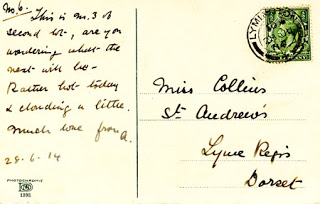 No. 6. This is no. 3 of
second lot, are you
wondering what the
next will be –
Rather hot today
& clouding a little.
Much love from A.
28.6.14
PHOTOCHROMIE
Miss Collins
St. Andrew's
Lyme Regis
Dorset